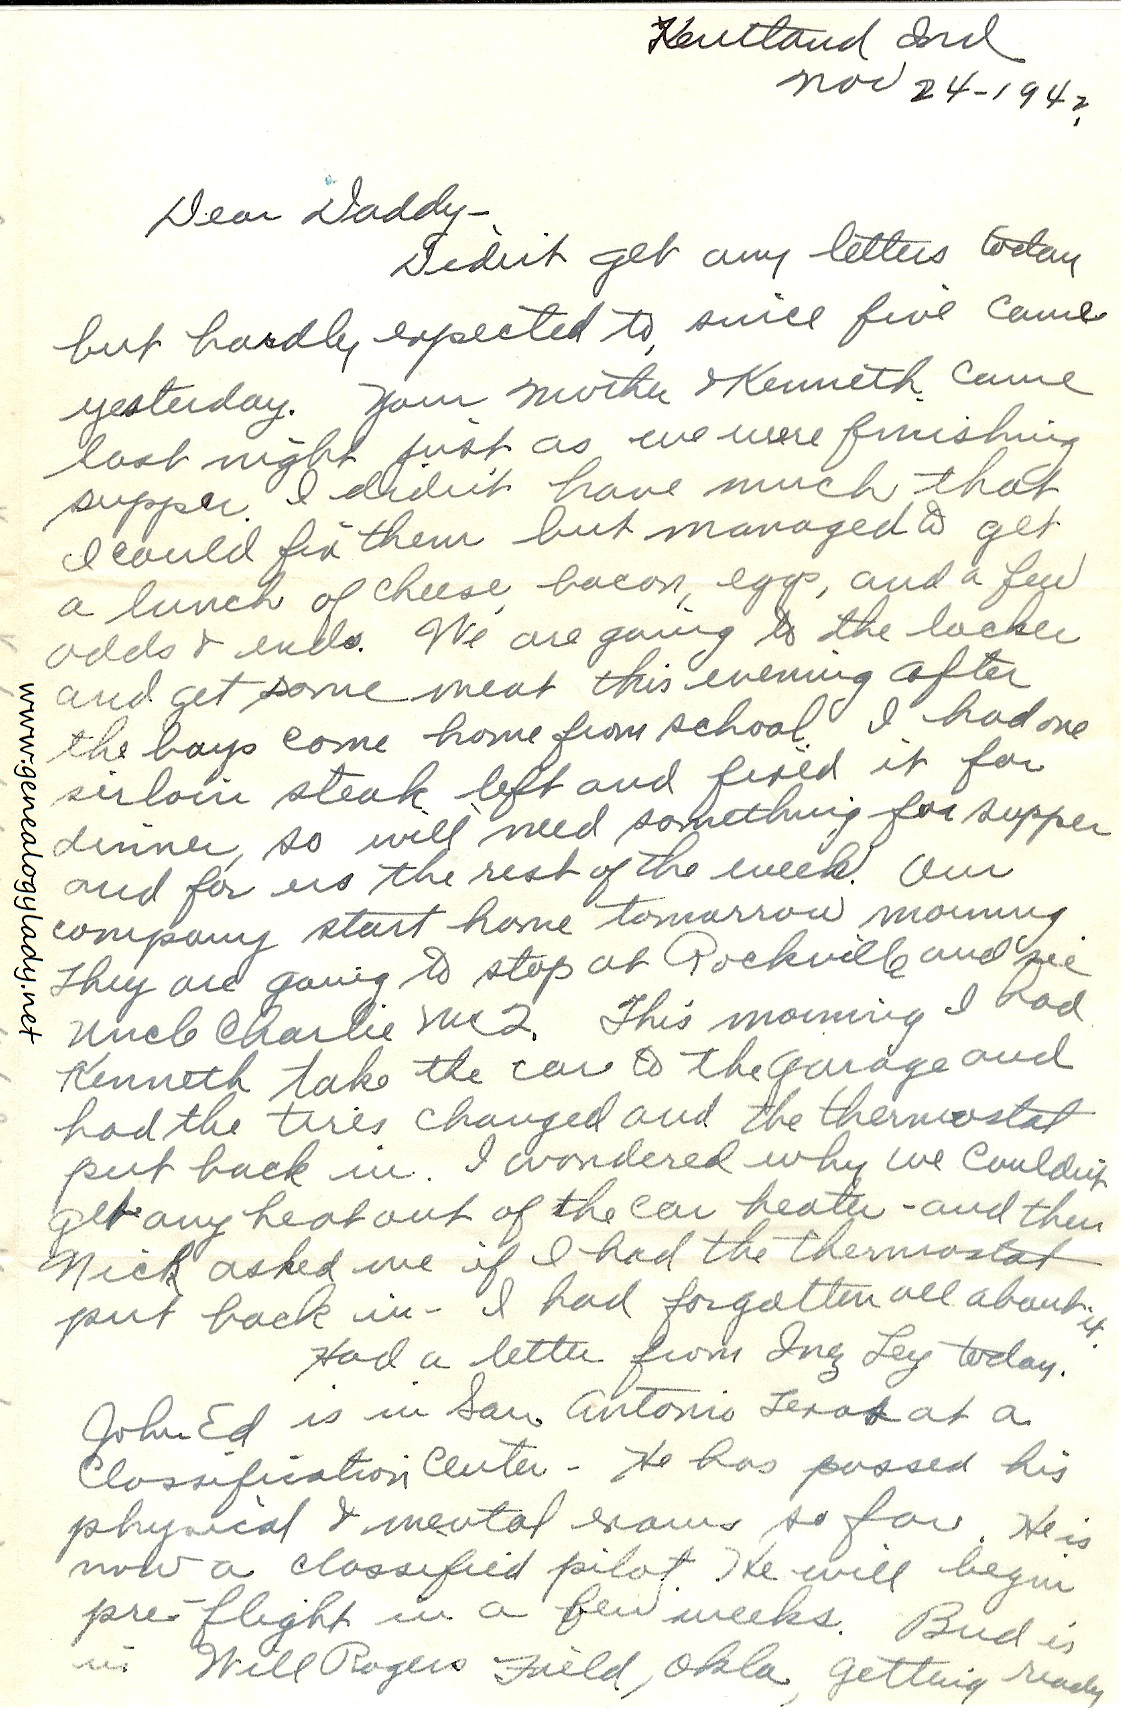 Kentland Ind
Nov 24-1942
Dear Daddy-
Didn't get any letters today
but hardly expected to, since five came
yesterday. Your Mother & Kenneth came
last night just as we were finishing
supper. I didn't have much that
I could fix them but managed to get
a lunch of cheese, bacon, eggs, and a few
odds & ends. We are going to the locker
and get some meat this evening after
the boys come home from school. I had one
sirloin steak left and fixed it for
dinner, so will need something for supper
and for us the rest of the week. Our
company start home tomorrow morning
They are going to stop at Rockville and see
Uncle Charlie Mc2. This morning I had
Kenneth take the car to the garage and
had the tires changed and the thermostat
put back in. I wondered why we couldn't
get any heat out of the car heater - and then
Nick asked me if I had the thermostat
put back in - I had forgotten all about it.
Had a letter from Inez Ley today.
John Ed is in San Antonio Texas at a
Classification Center - He has passed his
physical & mental exams so far. He is
now a classified pilot. He will begin
pre-flight in a few weeks. Bud is
in Will Rogers Field, Okla, getting ready
www.genealogylady.net